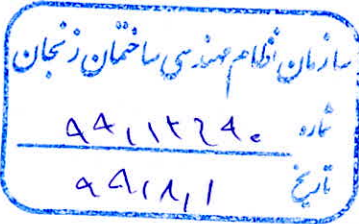 سازمان نظام مهندسی ساختمان زنجان
شماره
تاریخ ۹۹/۸/۱